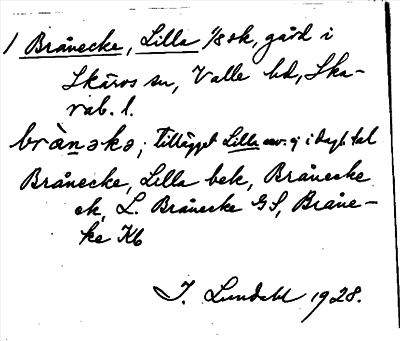 1 Brånecke, Lilla 1/8 ek, gård i
Skärvs sn, Valle hd, Ska-
rab. l.
brànəkə; tillägget Lilla anv. ej i dagl. tal
Brånecke, Lilla bek, Brånecke
ek, L. Brånecke GS, Bråne-
ke Kb
I. Lundahl 1928.